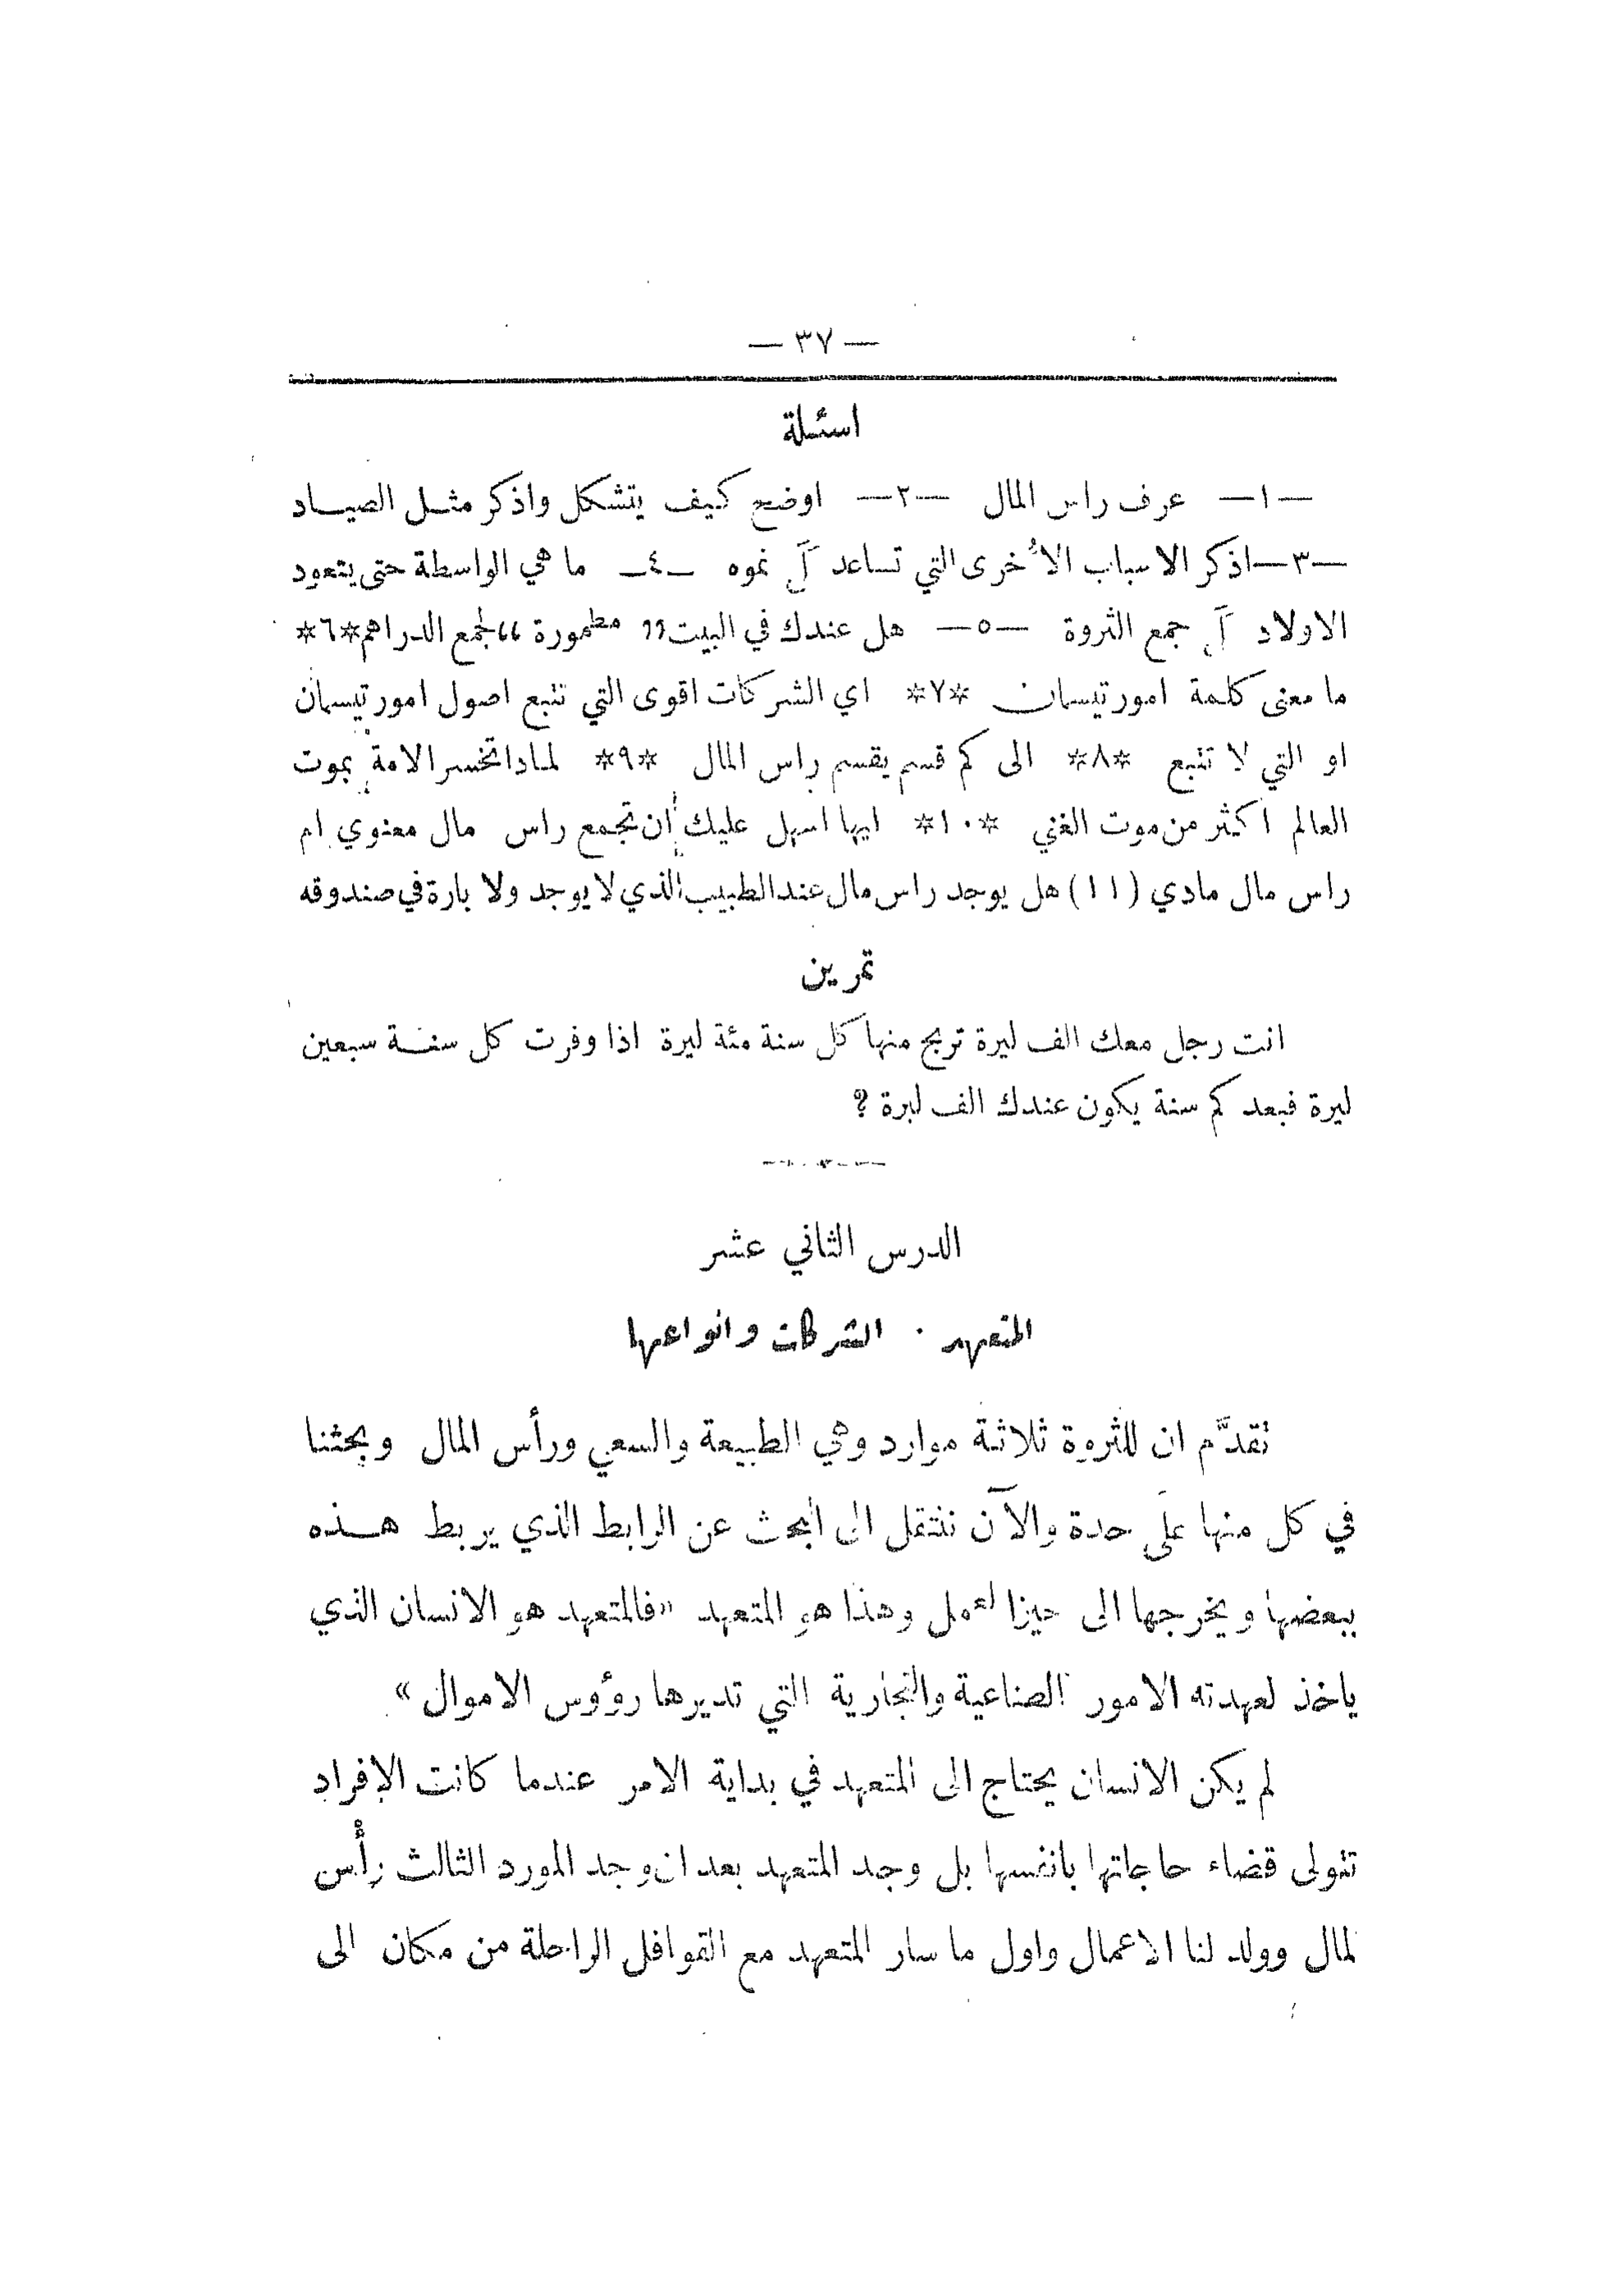 — ٣٧ —
اسئلة
—١— عرف راس المال —٢— اوضح كيف يتشكل واذكر مثل الصياد
—٣—اذكر الاسباب الأخرى التي تساعد نموه —٤— ما هي الواسطة حتى يتعود
الاولاد جمع الثروة —٥— هل عندك في البيت „ مطمورة “ لجمع الدراهم *٦*
ما معنى كلمة امورتيسان *٧* اي الشركات اقوى التي تتبع اصول امورتيسان
او التي لا تتبع *٨* الى كم قسم يقسم راس المال *٩* لماذا تخسر الامة بموت
العالم اكثر من موت الغني *١٠* ايها اسهل عليك أن تجمع راس مال معنوي ام
راس مال مادي (١١) هل يوجد راس مال عند الطبيب الذي لا يوجد ولا بارة في صندوقه
تمرين
انت رجل معك الف ليرة تربح منها كل سنة مئة ليرة اذا وفرت كل سنة سبعين
ليرة فبعد كم سنة يكون عندك الف ليرة ؟
الدرس الثاني عشر
المتعهد . الشركات وانواعها
تقدَّم ان للثروة ثلاثة موارد وهي الطبيعة والسعي ورأس المال وبحثنا
في كل منها على حدة والآن ننتقل الى البحث عن الرابط الذي يربط هذه
ببعضها ويخرجها الى حيز العمل وهذا هو المتعهد «فالمتعهد هو الانسان الذي
ياخذ لعهدته الامور الصناعية والتجارية التي تديرها رؤوس الاموال »
لم يكن الانسان يحتاج الى المتعهد في بداية الامر عندما كانت الافراد
تتولى قضاء حاجاتها بانفسها بل وجد المتعهد بعد ان وجد المورد الثالث رأس
لمال وولد لنا الاعمال واول ما سار المتعهد مع القوافل الراحلة من مكان الى